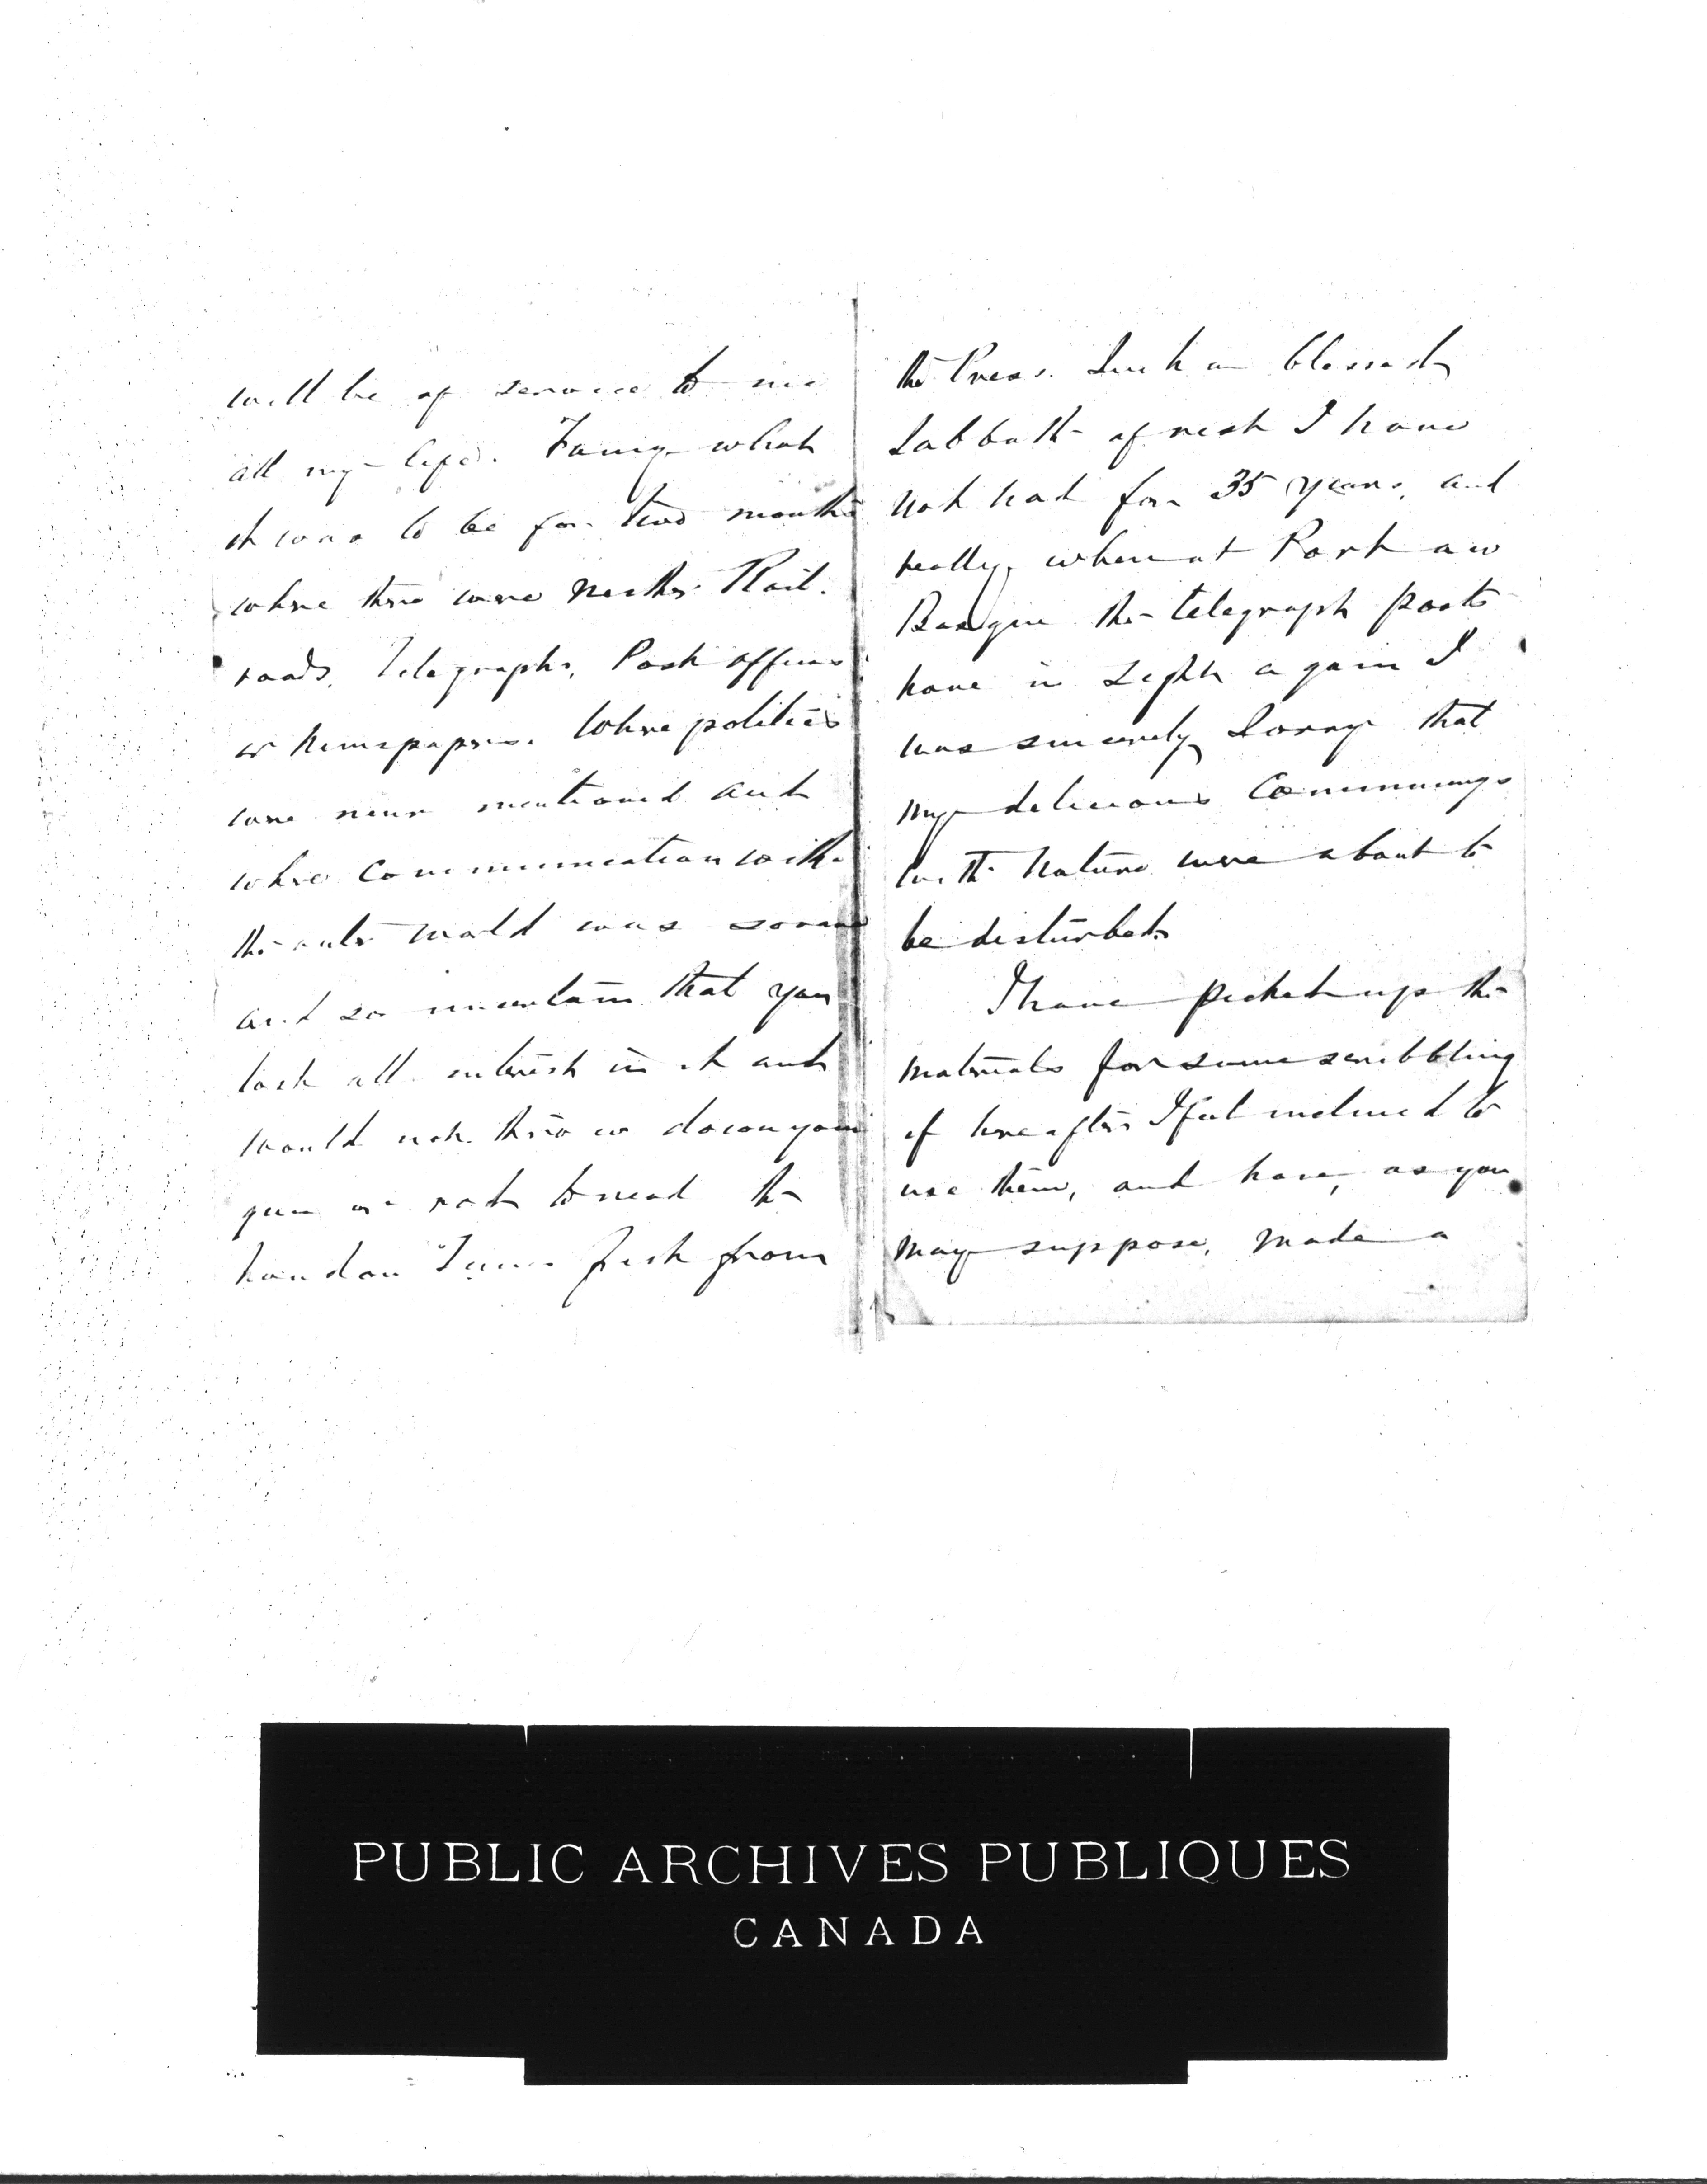 will be of service to me
all my life. Fancy what
it was to be for two months
where there were neither Rail.
roads, Telegraphs, Post offices
or Newspapers. Where politics
were never mentioned and
where communication with
the outer world was so rare
and so uncertain that you
lost all interest in it and
would not throw down your
gun or rod to read the
London Times fresh from
the Press. Such a blessed
Sabbath of rest I have
not had for 35 years, and
really, when at Port aux
Basque the telegraph posts
hove in sight again I
was sincerely sorry that
my delicious Communings
with Nature were about to
be disturbed.
I have picked up the
materials for some scribbling
if hereafter I feel inclined to
use them, and have, as you
may suppose, made a
PUBLIC ARCHIVES PUBLIQUES
CANADA